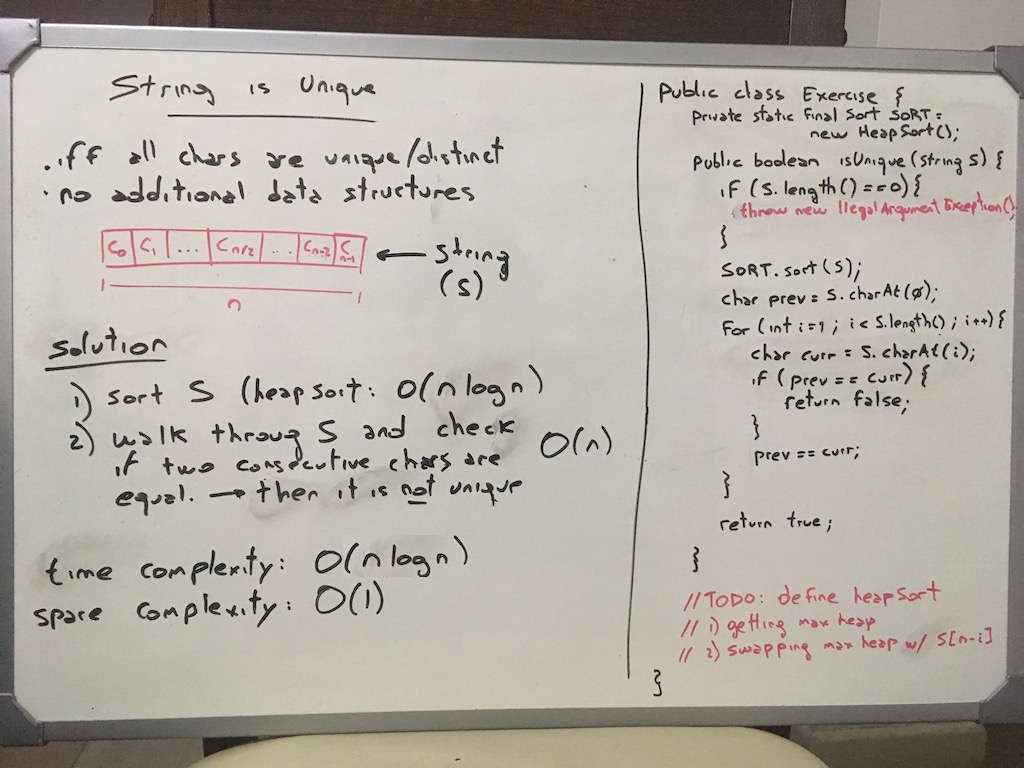 String is Unique
. iff all chars are unique/distinct
· no additional data structures
C0 C1 ... Cn/2 ... Cn-2 Cn-1 ← string
(S)
n
solution
1) sort S (heapsort: O(n log n)
2) walk throug S and check O(n)
if two consecutive chars are
equal. → then it is not unique
time complexity: O(n log n)
space complexity: O(1)
Public class Exercise {
Private static Final Sort SORT =
new HeapSort();
Public boolean isUnique(String s) {
if (S.length() ==0){
throw new IlegalArgumentException();
}
SORT.sort(S);
char prev = S.charAt(0);
For (int i=1; i< S.length(); i++){
char curr = S.charAt(i);
if (prev == curr) {
return false;
}
prev == curr;
}
return true;
}
//TODO: define heapSort
// 1) getting max heap
// 2) swapping max heap w/ S[n-i]
}